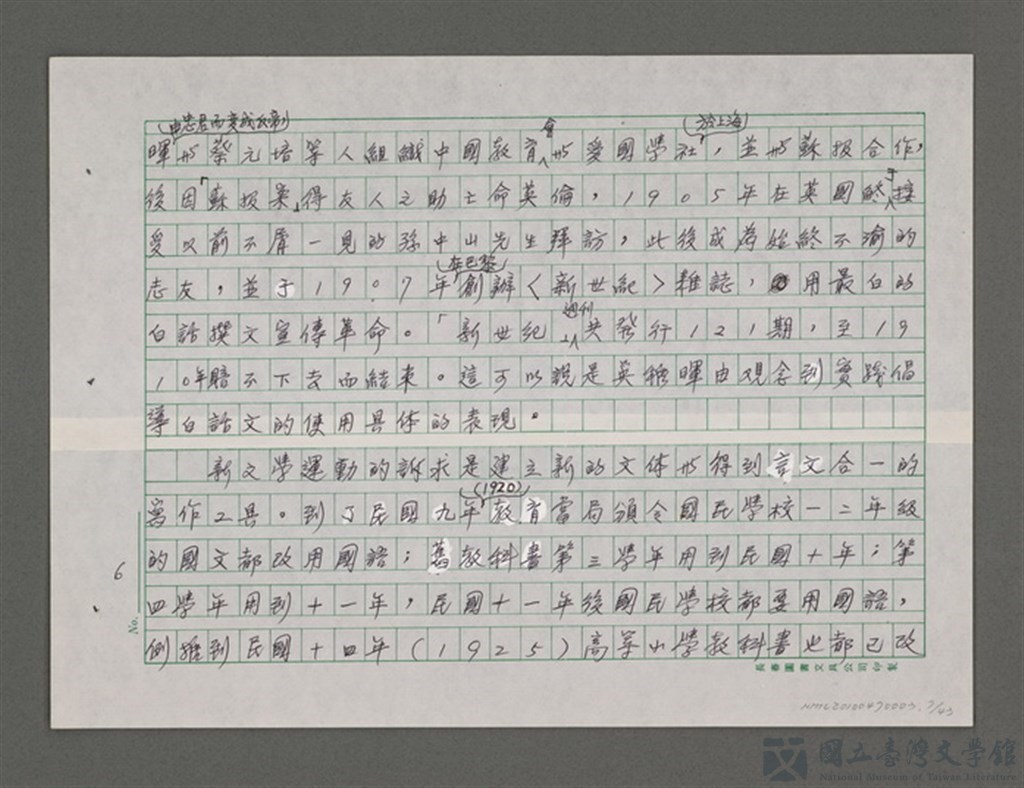 (由忠君而變成反帝)
會
(於上海)
暉與蔡元培等人組織中國教育與愛國學社,並與蘇报合作,
後因「蘇报案」得友人之助亡命英倫,1905年在英國終于接
受以前不屑一見的孫中山先生拜訪,此後成為始終不渝的
(在巴黎)
志友,並于1907年創辦〈新世紀〉雜誌,用最白的
週刊
白話撰文宣傳革命。「新世紀」共發行121期,至19
10年賠不下去而結束。這可以說是吳稚暉由观念到實踐倡
導白話文的使用具体的表現。
新文學運動的訴求是建立新的文体與得到言文合一的
(1920)
寫作工具。到了民國九年教育當局頒令國民學校一二年級
的國文都改用國語;舊教科書第三學年用到民國十年;第
四學年用到十一年,民國十一年後國民學校都要用國語,
例推到民國十四年(1925)高等小學教科書也都已改
6
No.
長春圖書文具公司印製
NML20100490003.7/43
國立臺灣文學館
National Museum of Taiwan Literature